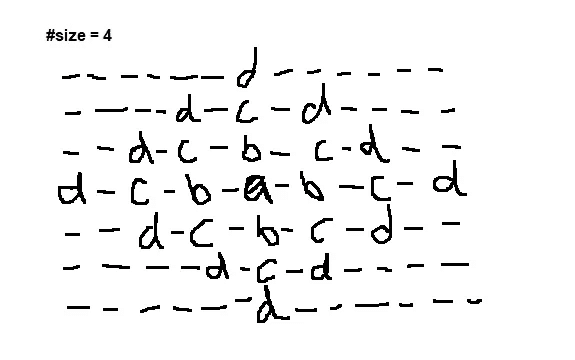 #size = 4
------d------
----d-c-d----
--d-c-b-c-d--
d-c-b-a-b-c-d
--d-c-b-c-d--
----d-c-d----
------d------